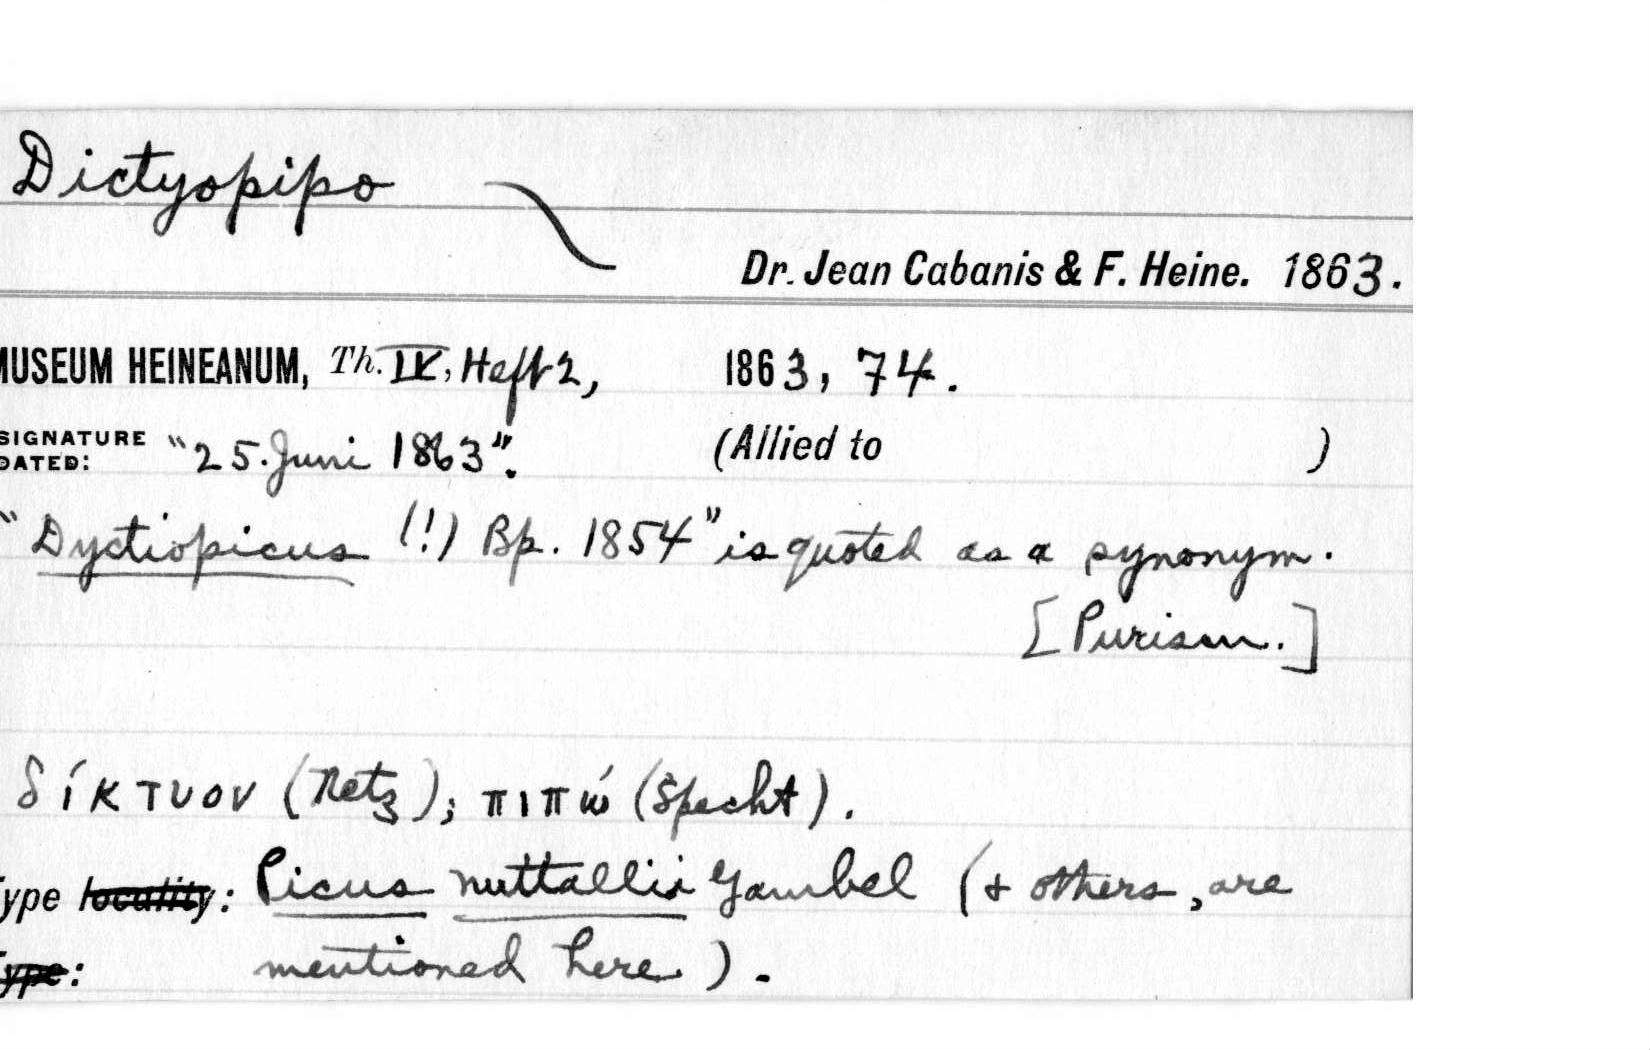 Dictyopipo
Dr. Jean Cabanis & F. Heine. 1863.
MUSEUM HEINEANUM, Th. IV, Heft 2, 1863, 74.
SIGNATURE DATED: "25. Juni 1863". (Allied to )
"Dyctiopicus (!) Bp. 1854" is quoted as a synonym.
[Purism.]
δίκτυον (Netz); πιπώ (Specht).
ype locality: Picus nuttallii Gambel (& others, are
ype: mentioned here).